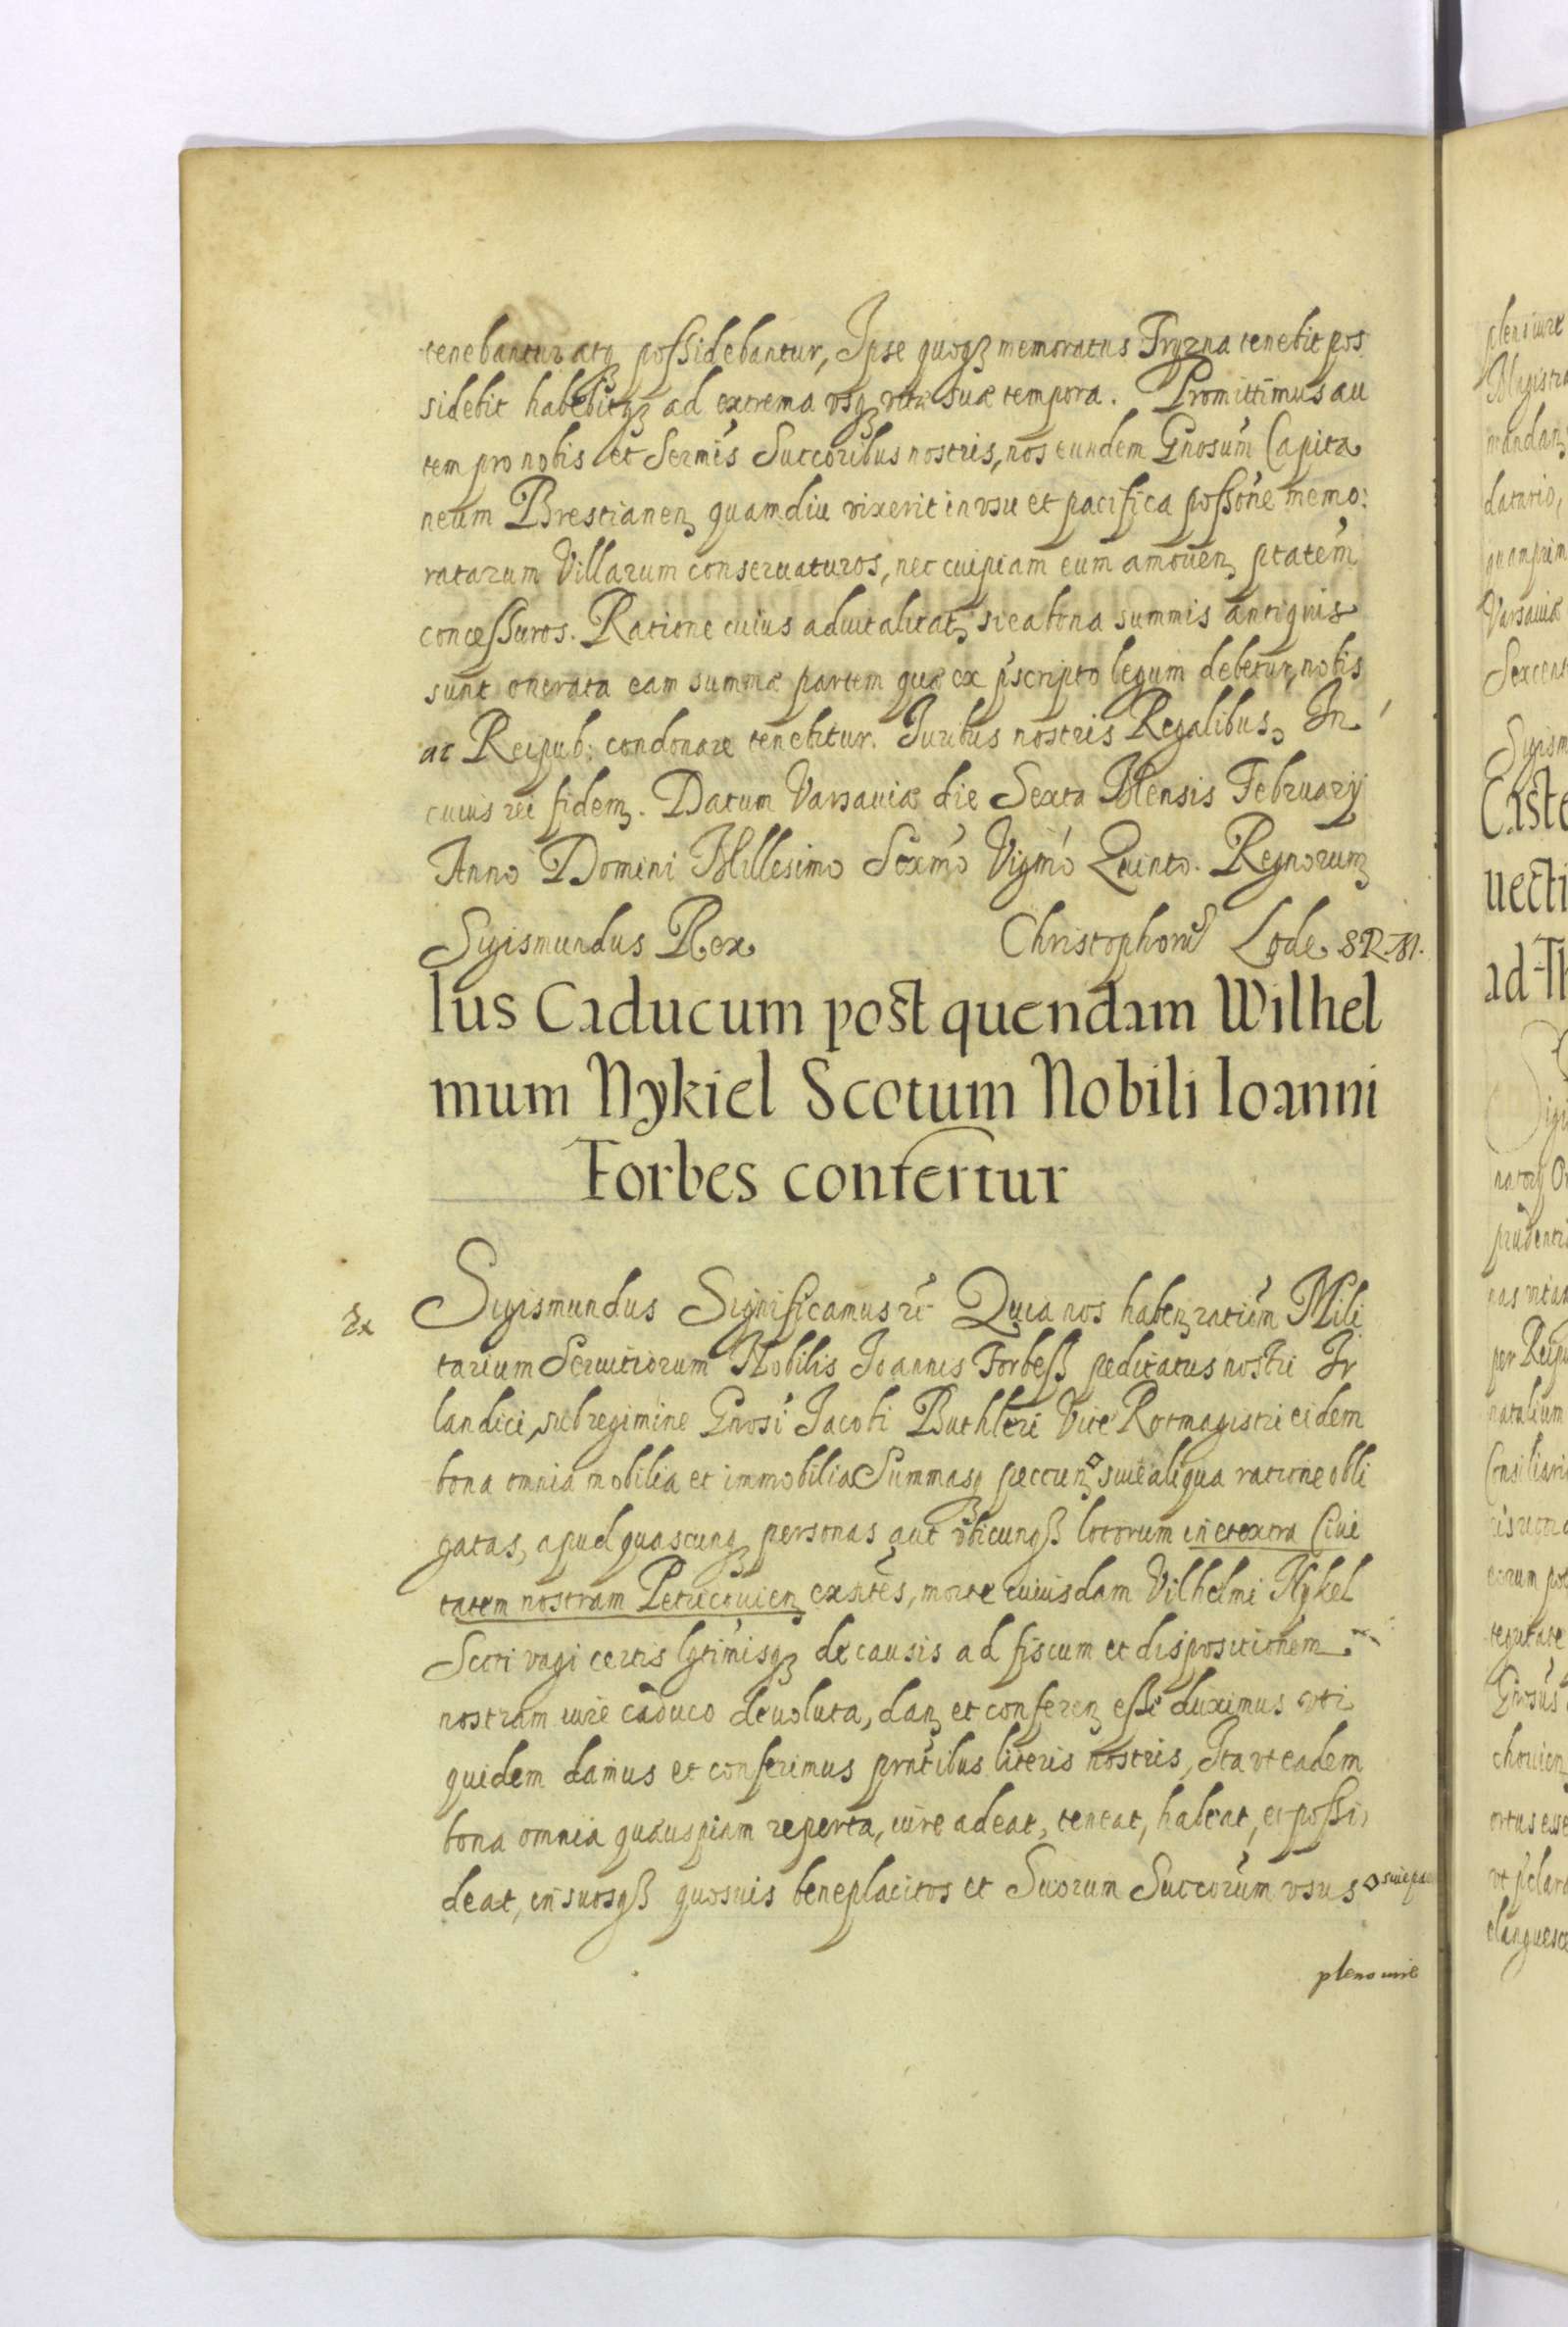 tenebantur atq₃ possidebantur, Ipse quoq₃ memoratus Tryzna tenebit pos
sidebit habebitq₃ ad extrema vsq₃ vitæ suæ tempora. Promittimus au
tem pro nobis et Sermis Succoribus nostris, nos eundem Gnosum Capita
neum Brestianen₃ quamdiu vixerit in vsu et pacifica possone memo:
ratarum Villarum conseruaturos, nec cuipiam eum amouen₃ ptatem
concessuros. Ratione cuius aduitalitat₃ si ea bona summis antiquis
sunt onerata eam summæ partem quæ ex pscripto legum debetur, nobis
ac Reipub: condonare tenebitur. Juribus nostris Regalibus, In
cuius rei fidem. Datum Varsauiæ die Sexta Mensis February
Anno Domini Millesimo Sexmo Vigmo Quinto. Regnorum
Sigismundus Rex Christophorus Lode S R M.
Ius Caducum post quendam Wilhel
mum Nykiel Scotum Nobili Ioanni
Forbes confertur
Ex Sigismundus Significamus Quia nos haben₃ ratiem Mili
tarium Seruitiorum Nobilis Joannis Forbess peditatus nostri Ir
landici, sub regimine Gnosi Jacobi Buthleri Vice Rotmagistri eidem
bona omnia mobilia et immobilia Summasq₃ peccun₃ siue aliqua ratione obli
gatas, apud quascunq₃ personas aut vbicunq₃ locorum in et extra Ciui
tatem nostram Petricouien₃ exsntes, morte cuiusdam Vilhelmi Nykel
Scoti vagi certis lgtimisq₃ de causis ad fiscum et dispositionem
nostram iure caduco deuoluta, dan₃ et conferen₃ esse duximus vti
quidem damus et conferimus prntibus literis nostris, Ita vt eadem
bona omnia quauspiam reperta, iure adeat, teneat, habeat, et possi
deat, in suosq₃ quosuis beneplacitos et Suorum Succorum vsus
pleno iure